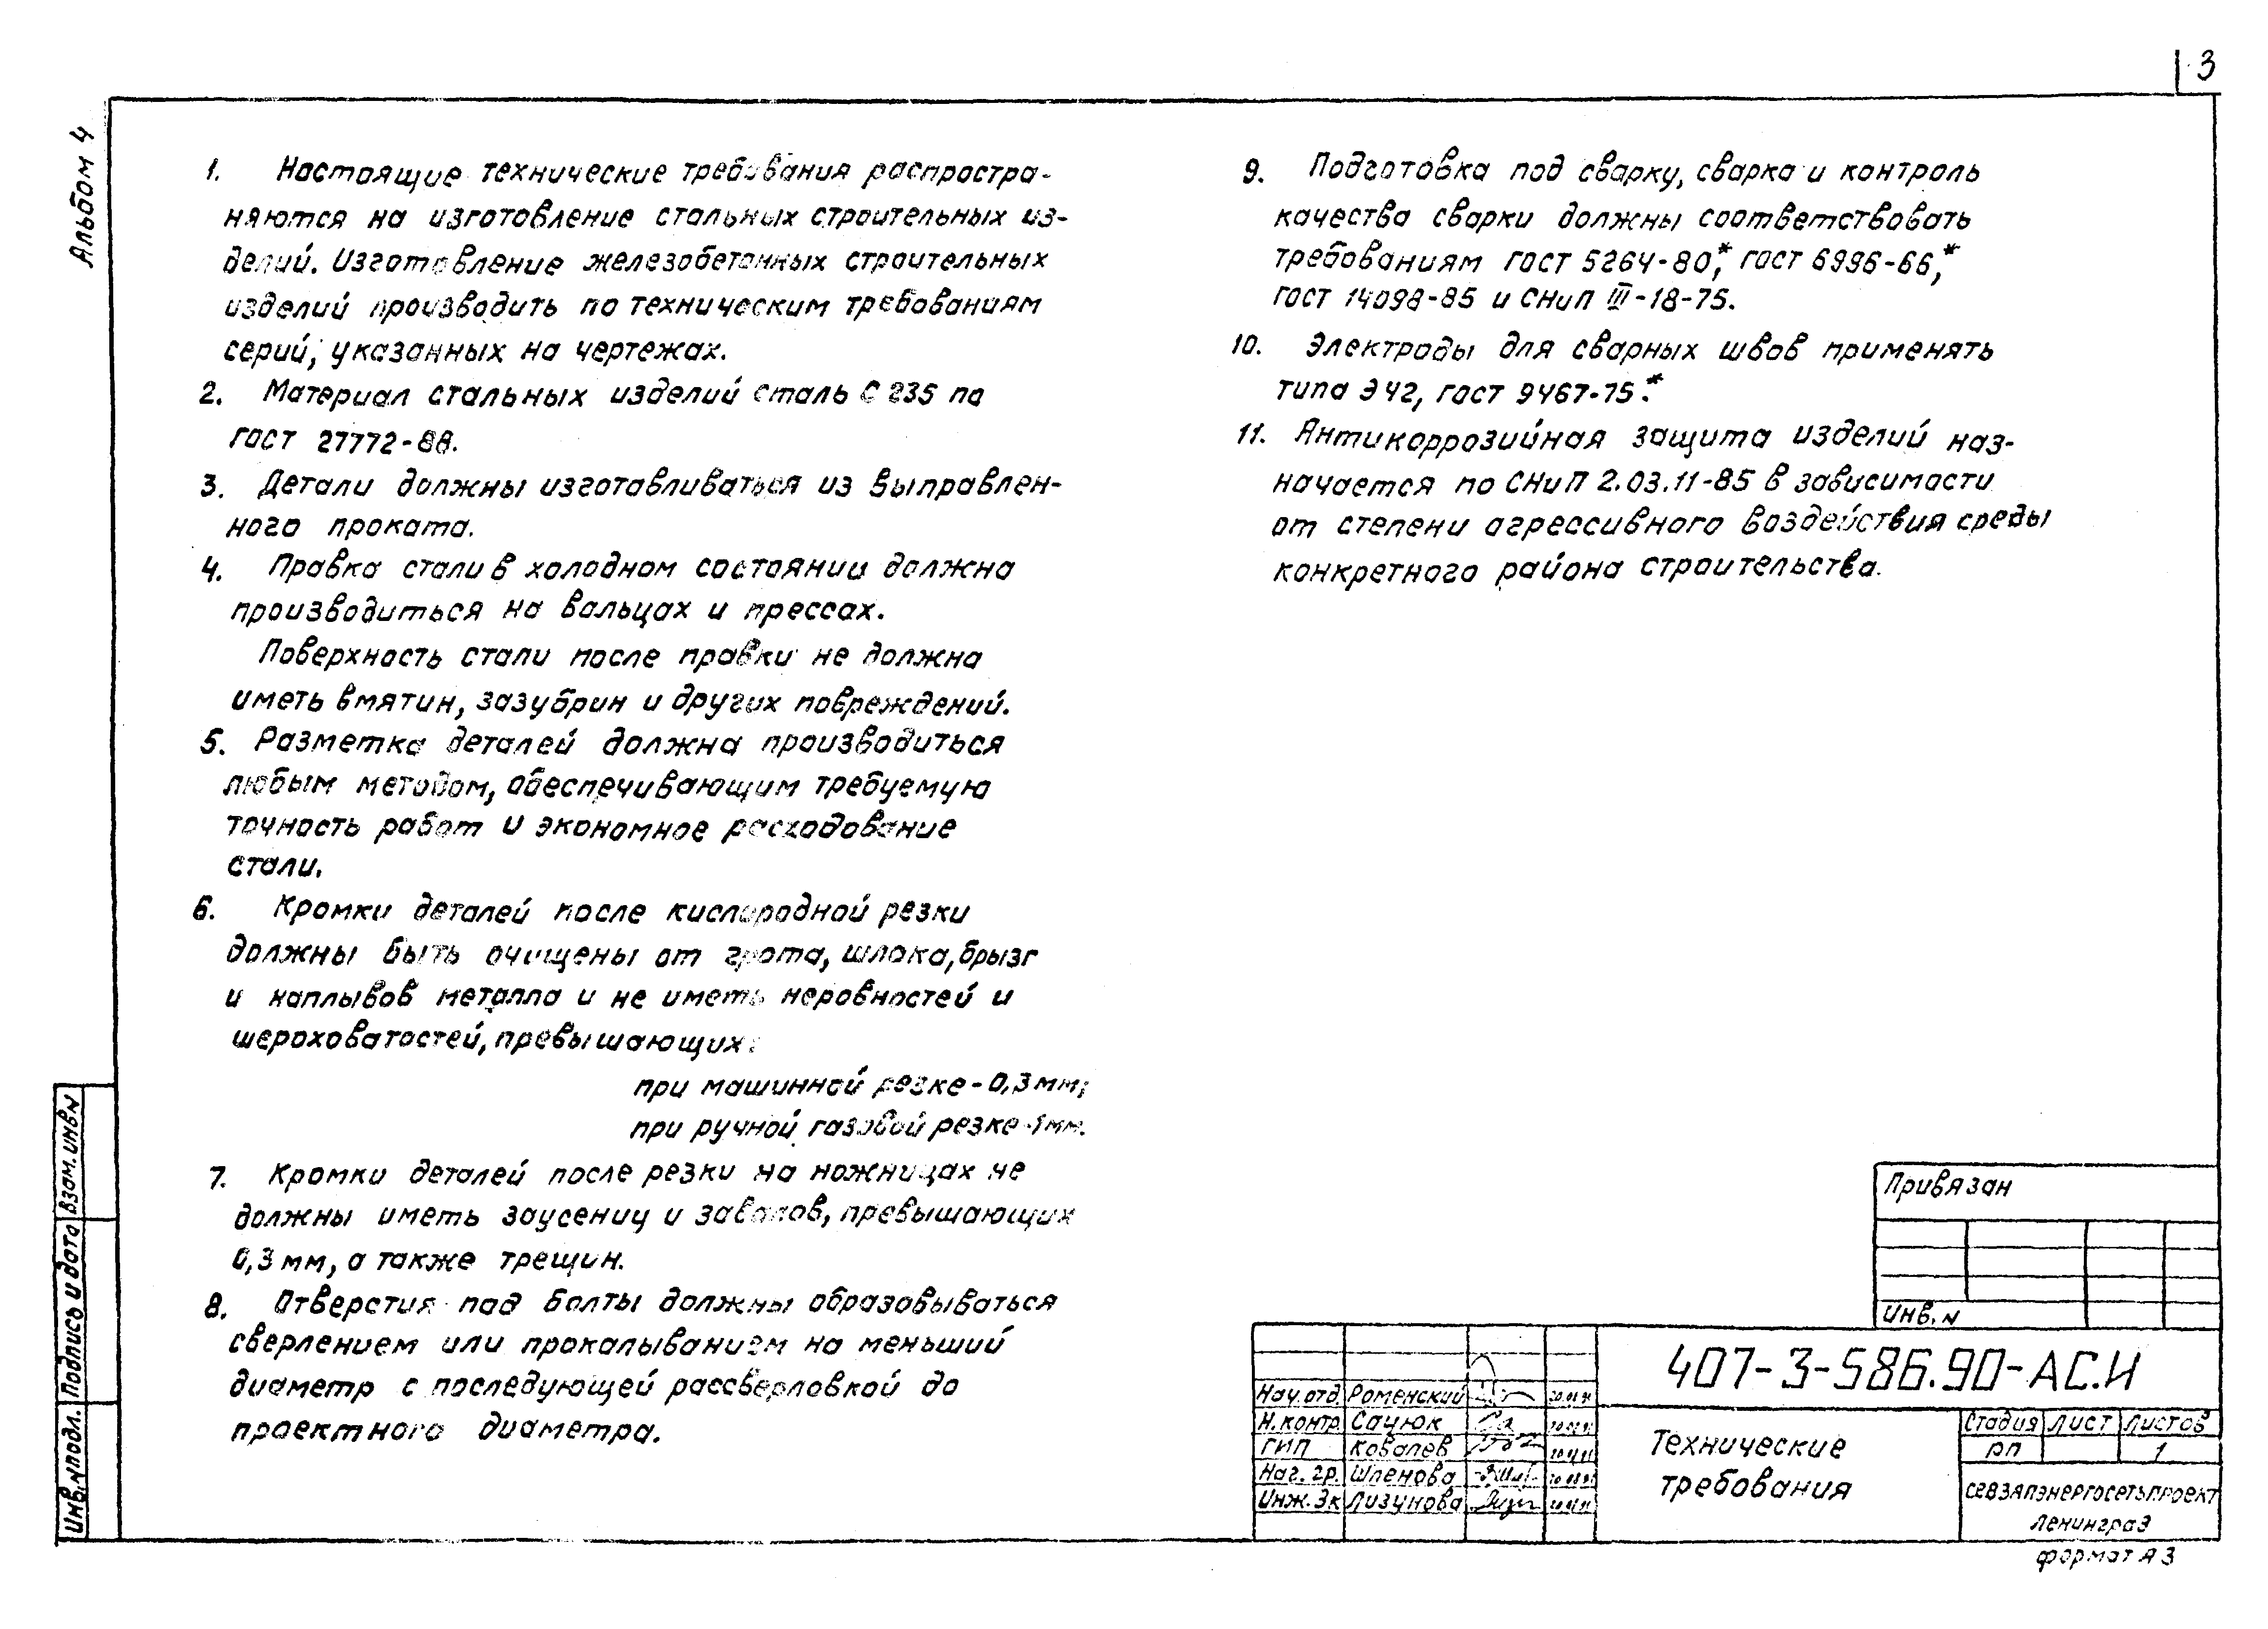 3
Альбом 4
1. Настоящие технические требования распростра-
няются на изготовление стальных строительных из-
делий. Изготовление железобетонных строительных
изделий производить по техническим требованиям
серий, указанных на чертежах.
2. Материал стальных изделий сталь С 235 по
ГОСТ 27772-88.
3. Детали должны изготавливаться из выправлен-
ного проката.
4. Правка стали в холодном состоянии должна
производиться на вальцах и прессах.
Поверхность стали после правки не должна
иметь вмятин, зазубрин и других повреждений.
5. Разметка деталей должна производиться
любым методом, обеспечивающим требуемую
точность работ и экономное расходование
стали.
6. Кромки деталей после кислородной резки
должны быть очищены от грата, шлака, брызг
и наплывов металла и не иметь неровностей и
шероховатостей, превышающих:
при машинной резке - 0,3 мм;
при ручной газовой резке - 1 мм.
7. Кромки деталей после резки на ножницах не
должны иметь заусениц и завалов, превышающих
0,3 мм, а также трещин.
8. Отверстия под болты должны образовываться
сверлением или прокалыванием на меньший
диаметр с последующей рассверловкой до
проектного диаметра.
9. Подготовка под сварку, сварка и контроль
качества сварки должны соответствовать
требованиям ГОСТ 5264-80,* ГОСТ 6996-66,*
ГОСТ 14098-85 и СНиП III-18-75.
10. Электроды для сварных швов применять
типа Э42, ГОСТ 9467-75.*
11. Антикоррозийная защита изделий наз-
начается по СНиП 2.03.11-85 в зависимости
от степени агрессивного воздействия среды
конкретного района строительства.
Взам. инв N
Подпись и дата
Инв. N подл.
Привязан
Инв. N
407-3-586.90-АС.И
Нач. отд. Роменский
Н. контр. Сацюк
ГИП Ковалев
Нач. гр. Шленова
Инж. Зк Лизунова
Технические
требования
Стадия Лист Листов
РП 1
СЕВЗАПЭНЕРГОСЕТЬПРОЕКТ
Ленинград
формат А3